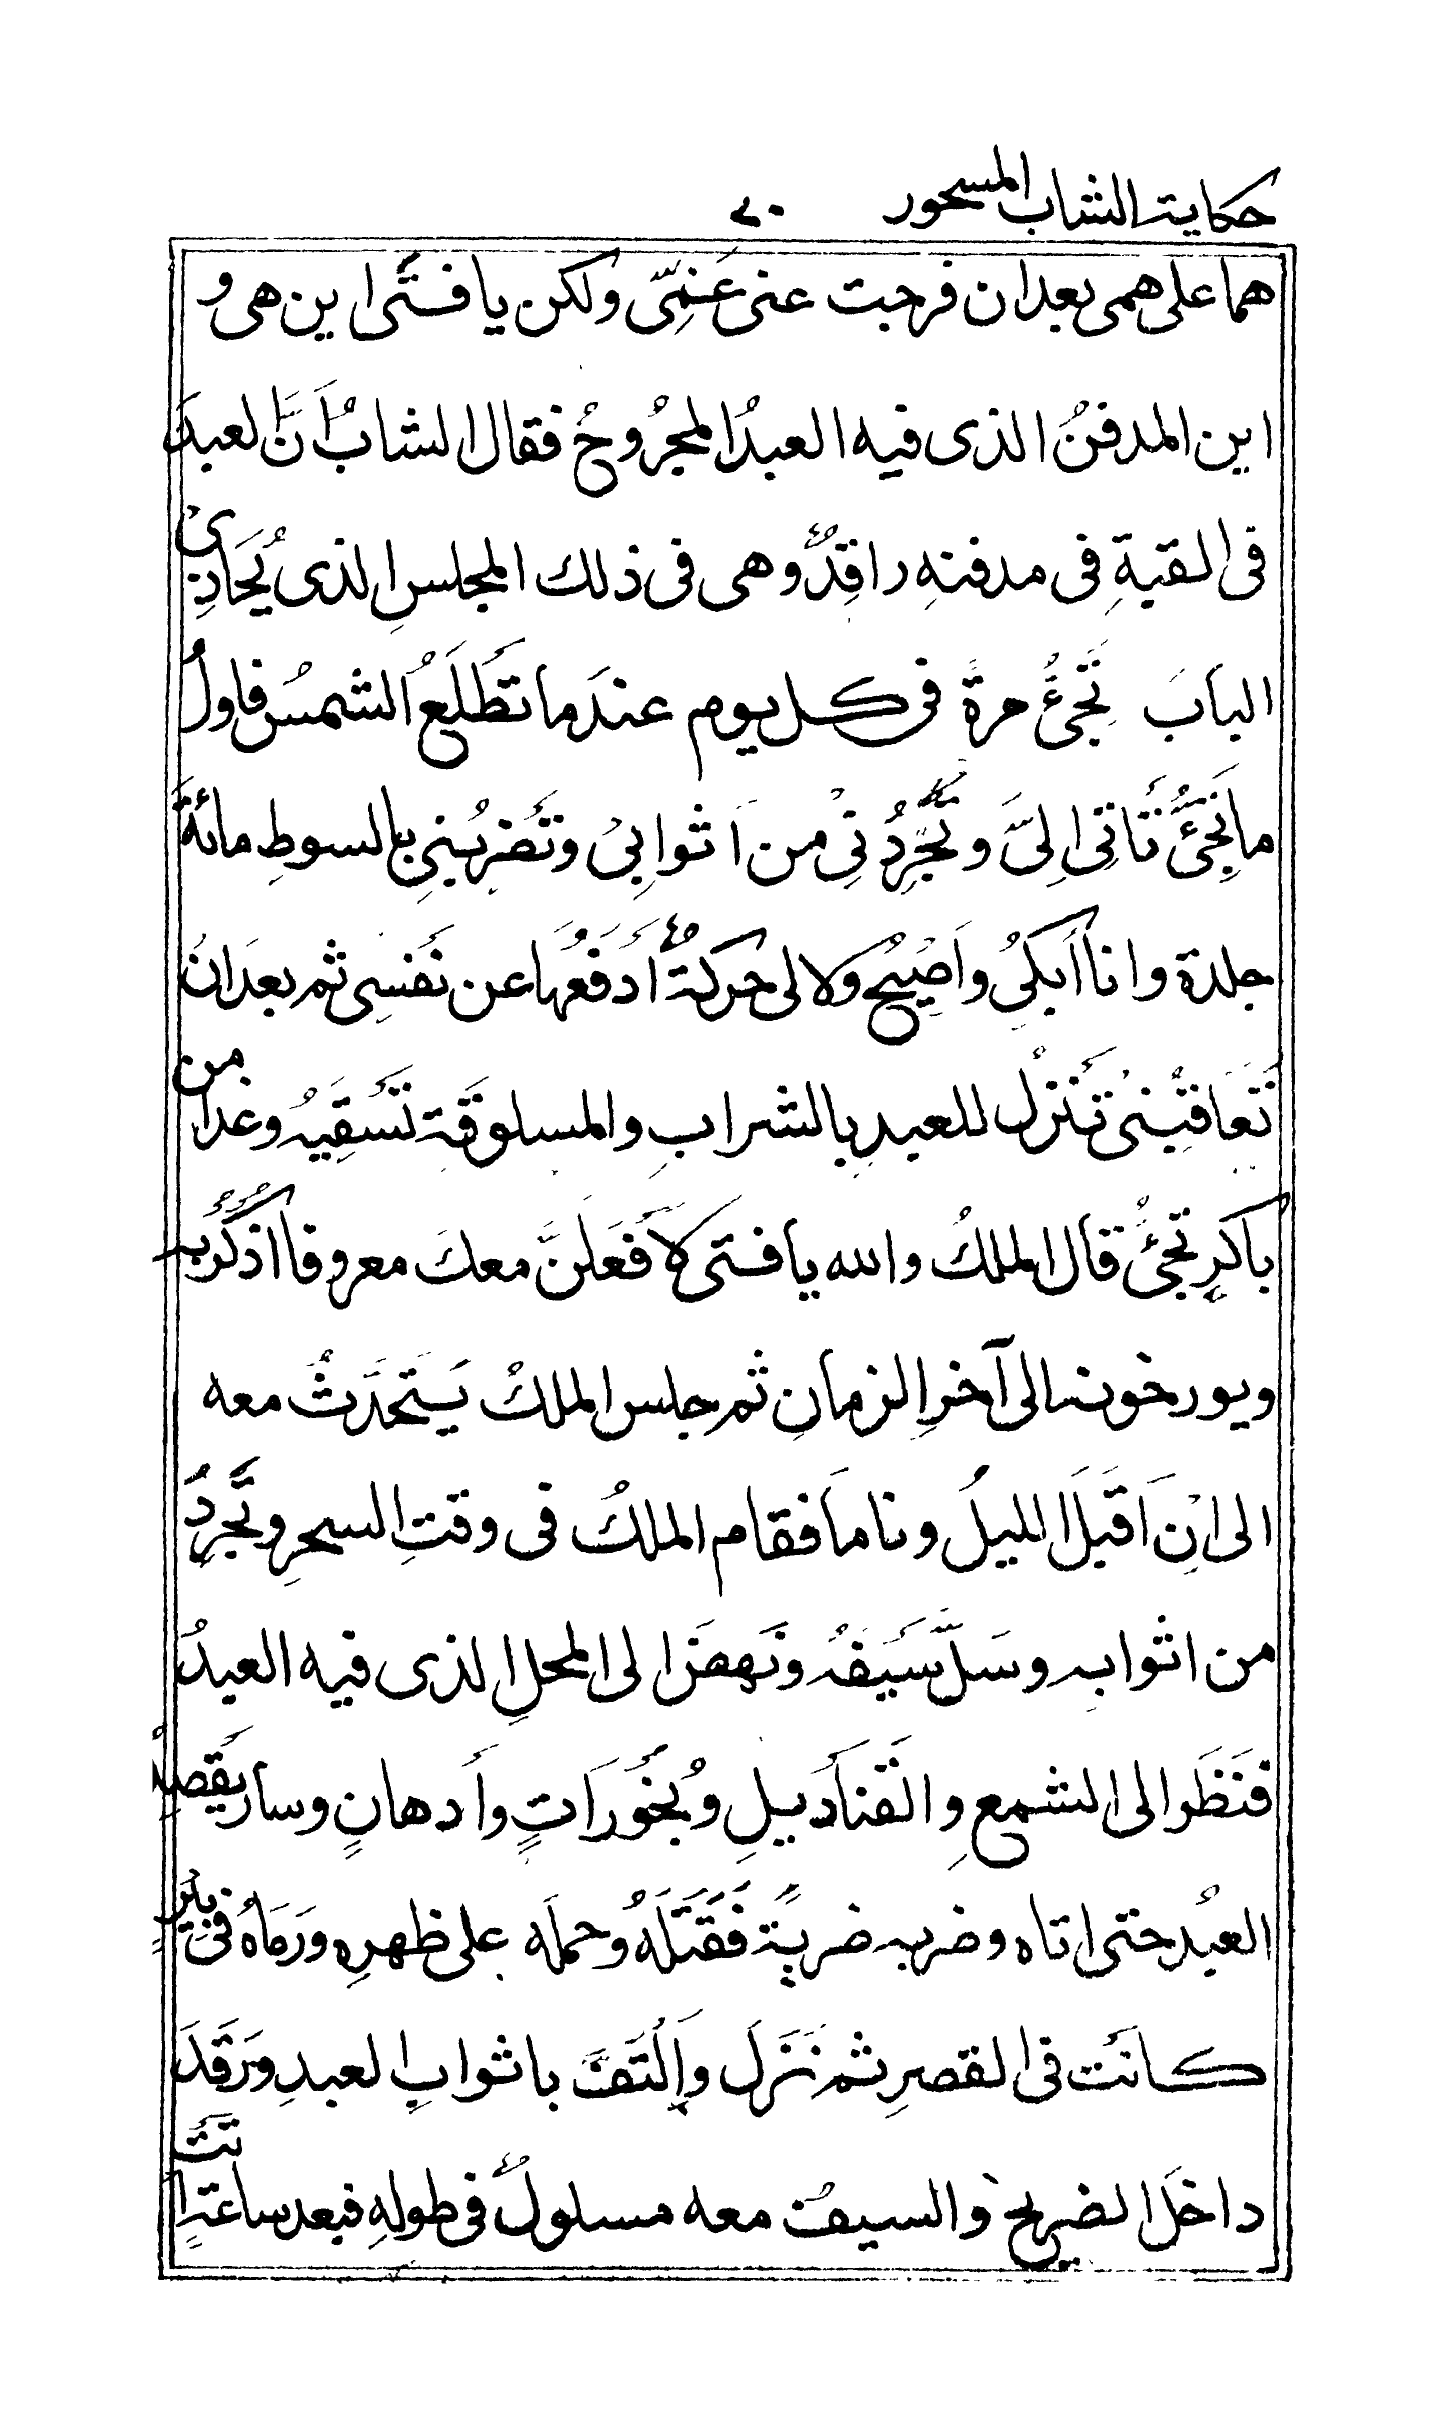 حكاية الشاب المسحور ٧٠
هما على همى بعد ان فرجت عنى غَمِّى ولكن يا فتًى اين هى و
اين المدفنُ الذى فيه العبدُ المجرُوحُ فقال الشابُ اَنَّ العبدَ
فى القبةِ فى مدفنهِ راقِدٌ وهى فى ذلك المجلسِ الذى يُحَاذِىْ
البابَ تَجِئُ مرة فى كل يوم عندَما تَطْلَعُ الشمسُ فاولُ
ما تَجِئُّ تَاتِى اِلىَّ وتُجَرِّدُنِىْ من اَثوابِىْ وتَضرِبُنِى بالسوطِ مائةَ
جلدة وانا اَبكِىْ واَصِيْحُ ولا لى حركةٌ اَدفَعُها عن نَفسِى ثم بعدَ ان
تَعَاقِبُنىْ تَنْزِلْ للعبدِ بالشرابِ والمسلوقَة تَسْقِيْهُ وغدا من
باكرٍ تجئُ قال الملكُ والله يا فتى لاَفعَلنَّ معكَ معروفا اذكُرُ به
ويورخونه الى آخرِ الزمانِ ثم جلس الملكُ يَتَحَدَّثُ معه
الى انِ اَقبَلَ الليلُ وناما فقام الملكُ فى وقتِ السحرِ وتَجَرَّدَ
من اثوابِه وسَلَّ سَيفَهُ ونَهضَ الى المحلِ الذى فيه العبدُ
فنَظَر الى الشمعِ والقَنادِيلِ وبُخُورَاتٍ واَدهانٍ وسار يَقصِدُ
العبْد حتى اتاه وضربه ضربةً فَقَتَلَهُ وحملَه على ظهرِه ورَمَاهُ فى بِئرٍ
كانَت فى القصرِ ثم نَزَلَ واِلتَفَّ باثوابِ العبدِ ورَقَدَ
داخلَ الضريحِ والسيفُ معه مسلولٌ فى طولهِ فبعد ساعةٍ اتَت